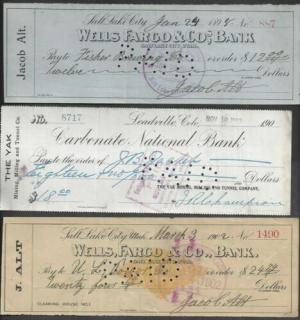 Jacob Alt.
Salt Lake City, Jan 24 190 No. 887
WELLS FARGO & CO'S BANK
SALT LAKE CITY, UTAH.
Pay to Fisher Brewing Co or order $12
Twelve Dollars
Jacob Alt
THE YAK
Mining, Milling and Tunnel Co.
No. 8717 Leadville, Colo. NOV 190
Carbonate National Bank
Pay to the order of J.B.
Eighteen Dollars
THE YAK MINING, MILLING AND TUNNEL COMPANY,
$18.00
J. ALT
Salt Lake City, Utah, March 3 1902 No. 1490
WELLS, FARGO & CO., BANK.
Pay to U. or order $24
Twenty four Dollars
CLEARING HOUSE NO.
Jacob Alt